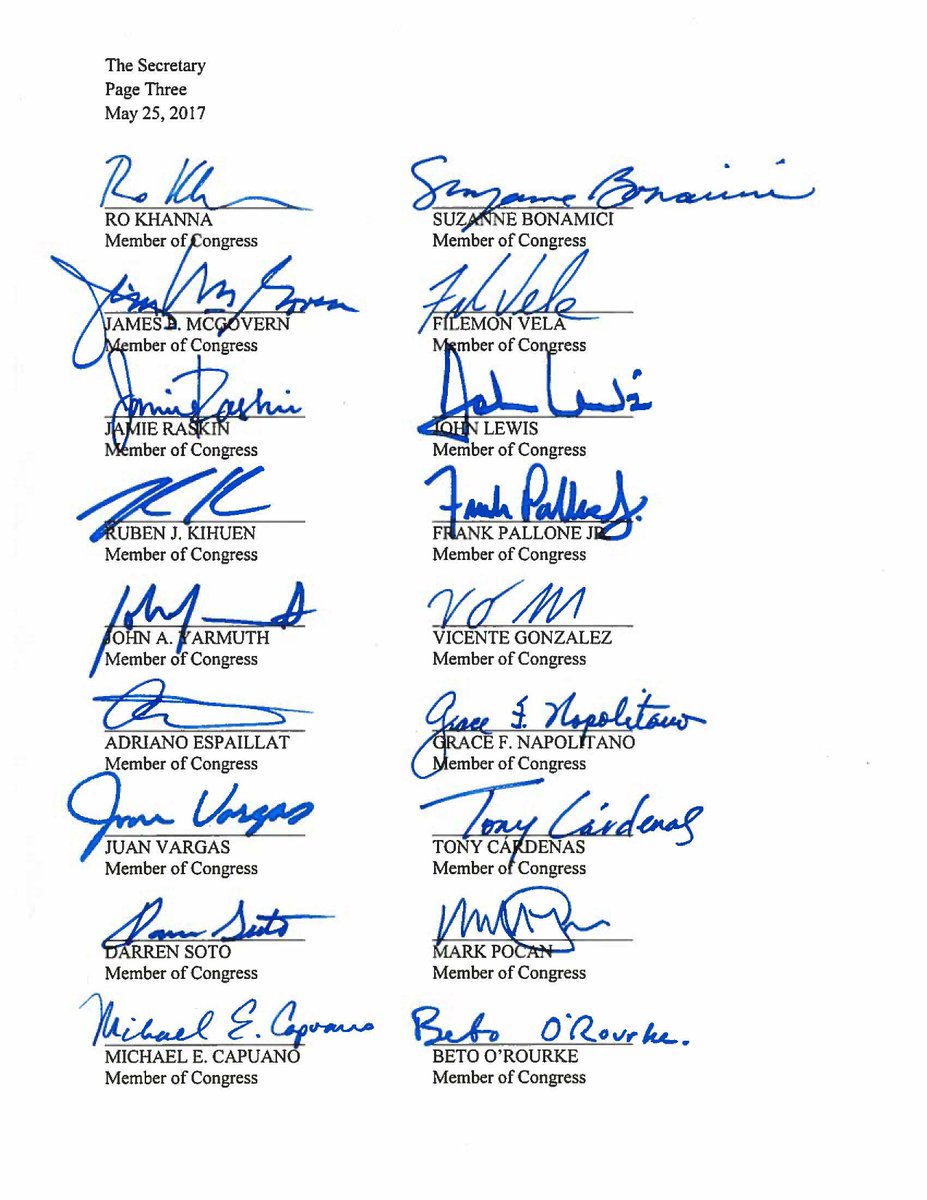 The Secretary
Page Three
May 25, 2017
Ro Kh
Suzanne Bonamici
RO KHANNA
SUZANNE BONAMICI
Member of Congress
Member of Congress
Jim McGovern
Fil Vela
JAMES MCGOVERN
FILEMON VELA
Member of Congress
Member of Congress
Jamie Raskin
John Lewis
JAMIE RASKIN
JOHN LEWIS
Member of Congress
Member of Congress
Frank Pallone Jr.
RUBEN J. KIHUEN
FRANK PALLONE JR
Member of Congress
Member of Congress
JOHN A. YARMUTH
VICENTE GONZALEZ
Member of Congress
Member of Congress
Grace F. Napolitano
ADRIANO ESPAILLAT
GRACE F. NAPOLITANO
Member of Congress
Member of Congress
Juan Vargas
Tony Cárdenas
JUAN VARGAS
TONY CÁRDENAS
Member of Congress
Member of Congress
Darren Soto
DARREN SOTO
MARK POCAN
Member of Congress
Member of Congress
Michael E. Capuano
Beto O'Rourke.
MICHAEL E. CAPUANO
BETO O'ROURKE
Member of Congress
Member of Congress